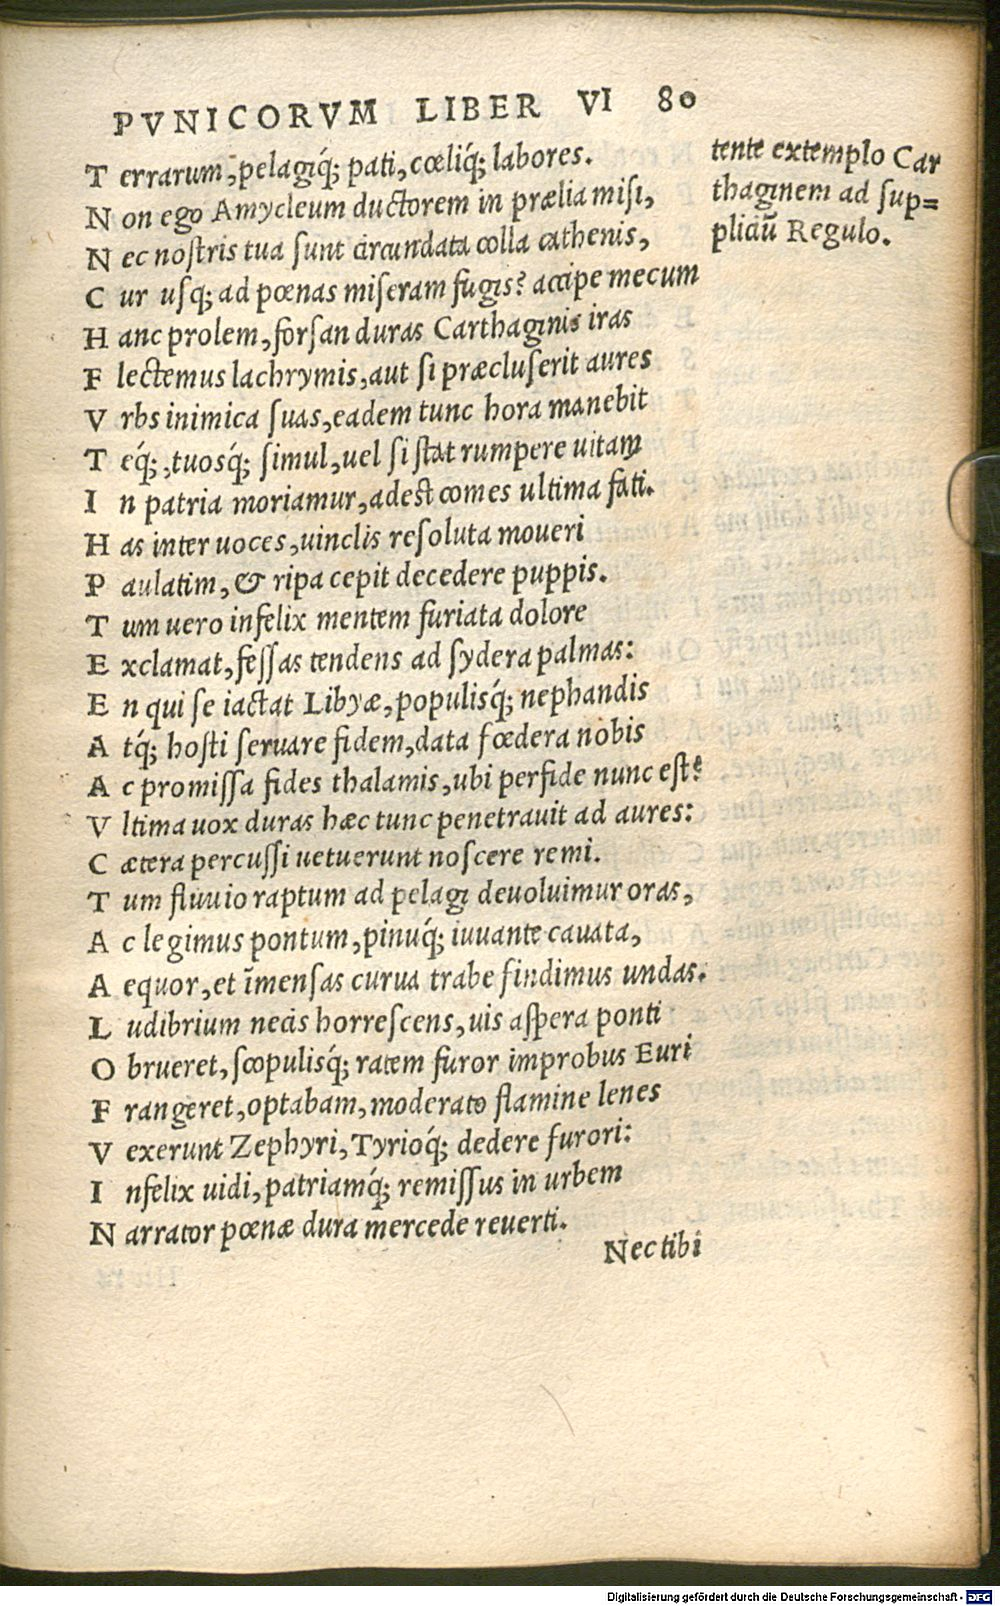 PVNICORVM LIBER VI 80
T errarum, pelagiq́; pati, cœliq́; labores.
N on ego Amycleum ductorem in prælia misi,
N ec nostris tua sunt circundata colla cathenis,
C ur usq; ad pœnas miseram fugis? accipe mecum
H anc prolem, forsan duras Carthaginis iras
F lectemus lachrymis, aut si præcluserit aures
V rbs inimica suas, eadem tunc hora manebit
T eq́;, tuosq́; simul, uel si stat rumpere uitam
I n patria moriamur, adest comes ultima fati.
H as inter uoces, uinclis resoluta moueri
P aulatim, & ripa cepit decedere puppis.
T um uero infelix mentem furiata dolore
E xclamat, fessas tendens ad sydera palmas:
E n qui se iactat Libyæ, populisq́; nephandis
A tq́; hosti seruare fidem, data fœdera nobis
A c promissa fides thalamis, ubi perfide nunc est?
V ltima uox duras hæc tunc penetrauit ad aures:
C ætera percussi uetuerunt noscere remi.
T um fluuio raptum ad pelagi deuoluimur oras,
A c legimus pontum, pinuq́; iuuante cauata,
A equor, et īmensas curua trabe findimus undas.
L udibrium necis horrescens, uis aspera ponti
O brueret, scopulisq́; ratem furor improbus Euri
F rangeret, optabam, moderato flamine lenes
V exerunt Zephyri, Tyrioq́; dedere furori:
I nfelix uidi, patriamq́; remissus in urbem
N arrator pœnæ dura mercede reuerti.
Nec tibi
tente extemplo Car
thaginem ad sup=
pliciū Regulo.
Digitalisierung gefördert durch die Deutsche Forschungsgemeinschaft - DFG